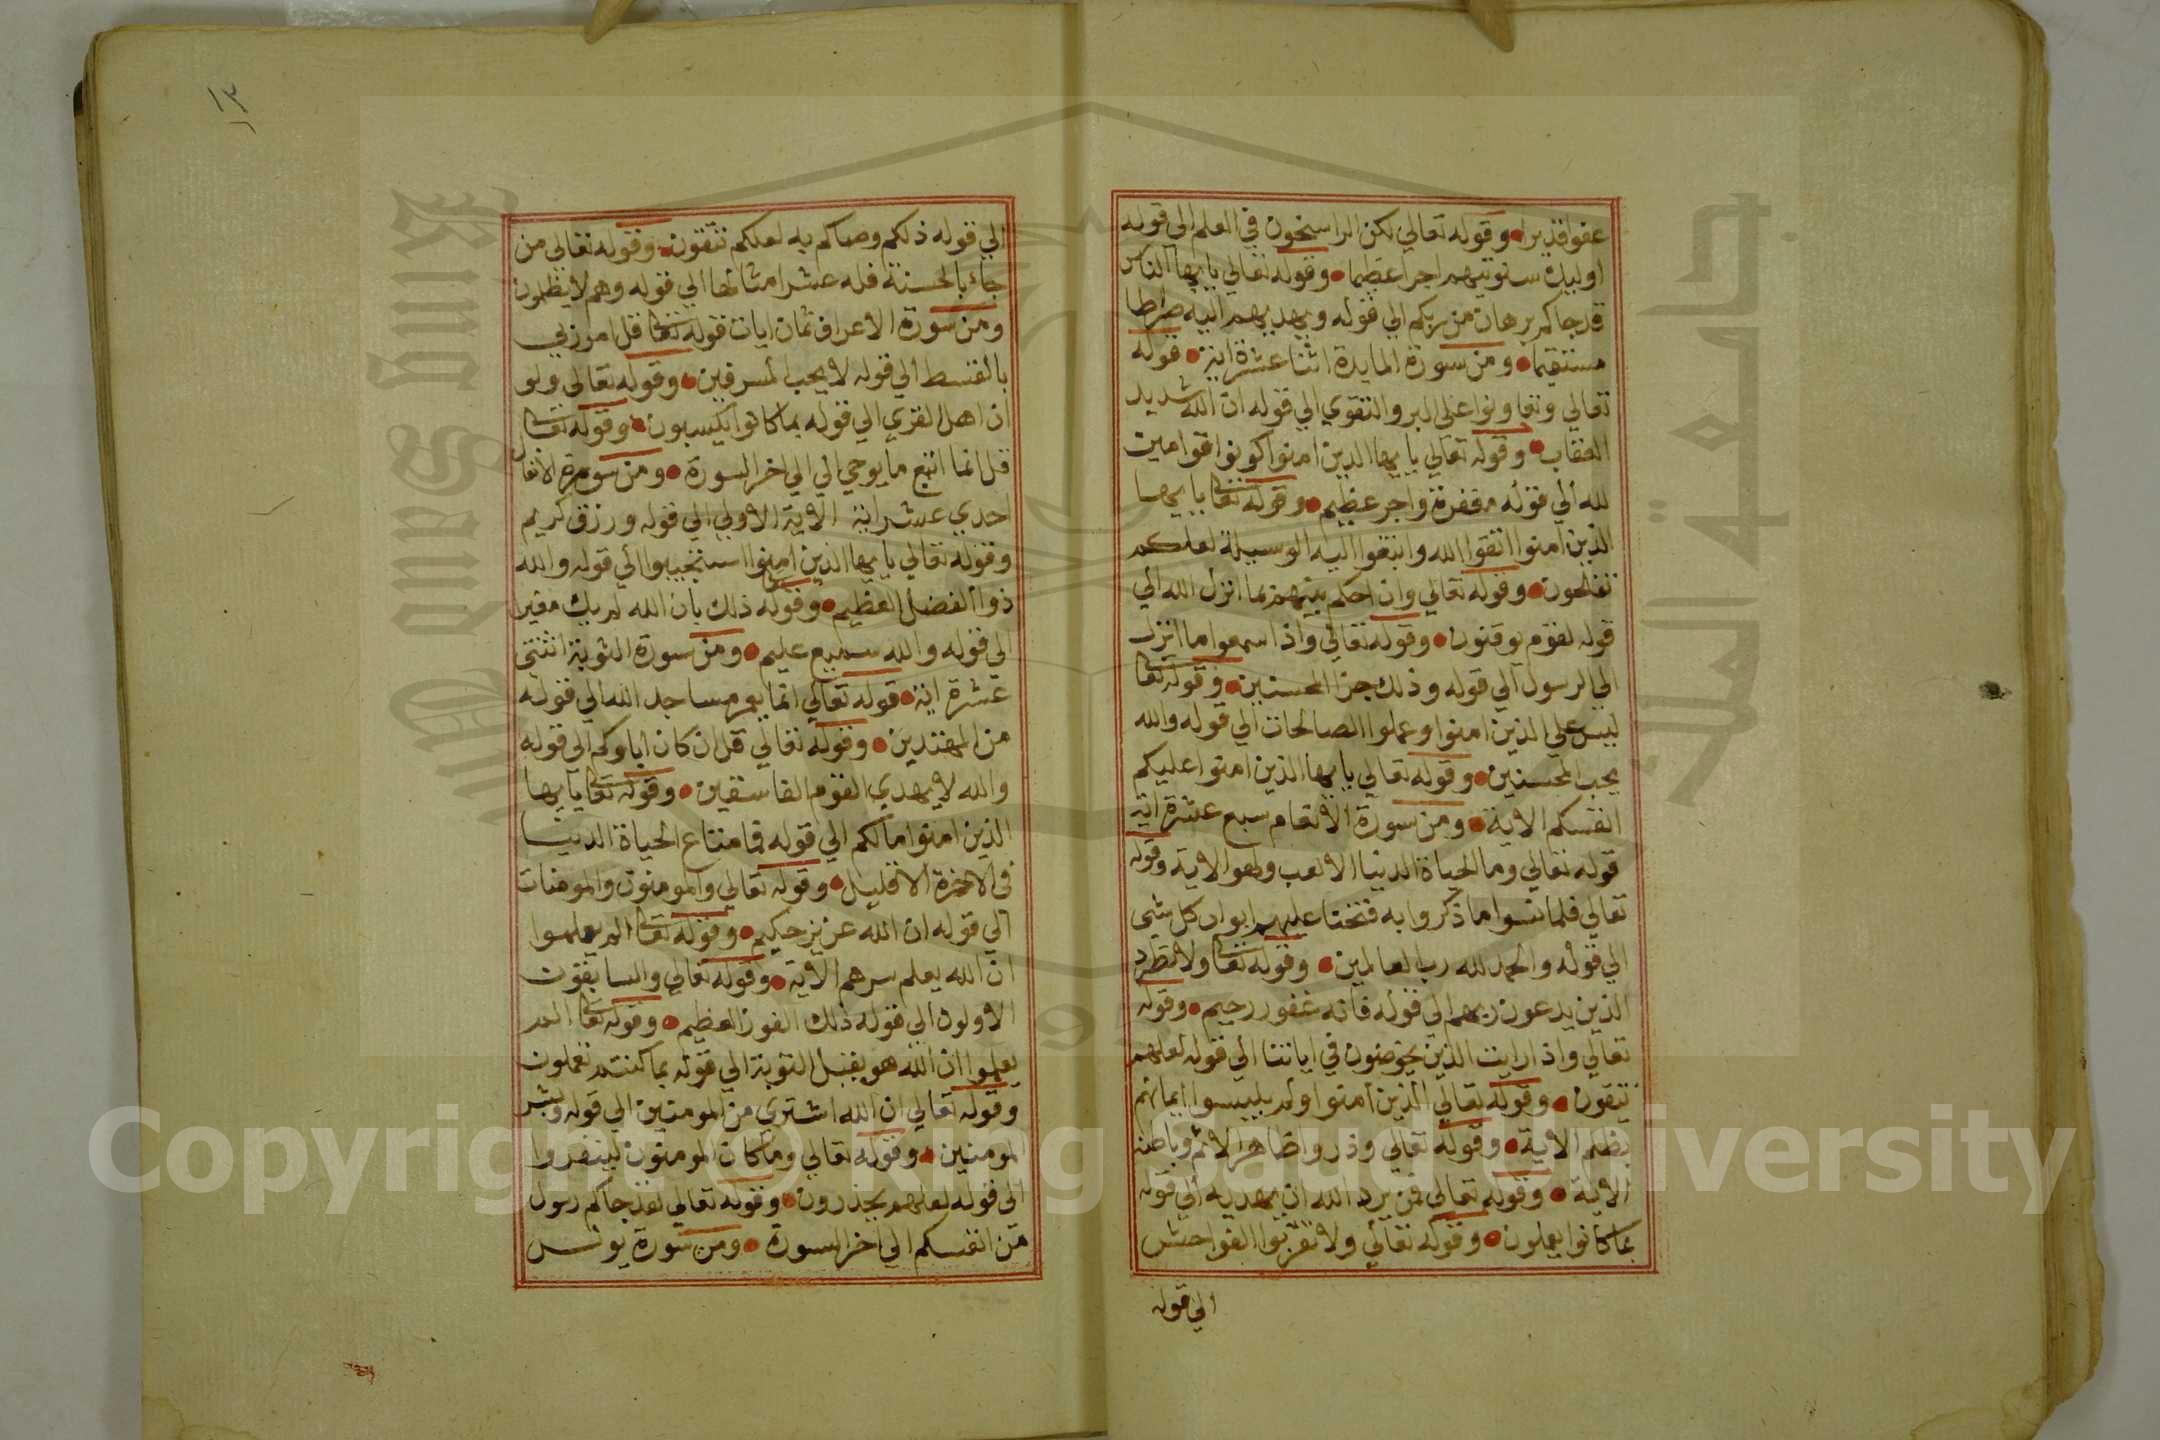 عفوا قديرا وقوله تعالي لكن الراسخون في العلم الى قوله
اوليك سنوتيهم اجرا عظيما وقوله تعالي يايها الناس
قد جاكم برهان من ربكم الي قوله ويهديهم اليه صراطا
مستقيما ومن سورة المايدة اثنا عشرة اية قوله
تعالي وتعاونوا على البر والتقوي الي قوله ان الله شديد
العقاب وقوله تعالي يايها الذين امنوا كونوا قوامين
لله الي قوله مغفرة واجر عظيم وقوله تعا يايها
الذين امنوا اتقوا الله وابتغوا اليه الوسيلة لعلكم
تفلحون وقوله تعالي وان احكم بينهم بما انزل الله الي
قوله لقوم يوقنون وقوله تعالي واذا سمعوا ما انزل
الي الرسول الي قوله وذلك جزا المحسنين وقوله تعا
ليس علي الذين امنوا وعملوا الصالحات الي قوله والله
يحب المحسنين وقوله تعالي يايها الذين امنوا عليكم
انفسكم الاية ومن سورة الانعام سبع عشرة اية
قوله تعالي وما الحياة الدنيا الا لعب ولهو الاية وقوله
تعالي فلما نسوا ما ذكروا به فتحنا عليهم ابواب كل شي
الي قوله والحمد لله رب العالمين وقوله تعا ولا تطرد
الذين يدعون ربهم الي قوله فانه غفور رحيم وقوله
تعالي واذا رايت الذين يخوضون في اياتنا الي قوله لعلهم
يتقون وقوله تعالي الذين امنوا ولم يلبسوا ايمانهم
بظلم الاية وقوله تعالي وذروا ظاهر الاثم وباطنه
الاية وقوله تعالى فمن يرد الله ان يهديه الي قوله
بما كانوا يعملون وقوله تعالي ولا تقربوا الفواحش
الي قوله
١٣
الي قوله ذلكم وصاكم به لعلكم تتقون وقوله تعالى من
جاء بالحسنة فله عشر امثالها الي قوله وهم لا يظلمون
ومن سورة الاعراف ثمان ايات قوله تعا قل امر ربي
بالقسط الي قوله لا يحب المسرفين وقوله تعالى ولو
ان اهل القري الي قوله بما كانوا يكسبون وقوله تعا
قل انما اتبع ما يوحي الي الي اخر السورة ومن سورة الانفال
احدي عشر اية الاية الاولي الي قوله ورزق كريم
وقوله تعالي يايها الذين امنوا استجيبوا الي قوله والله
ذوا الفضل العظيم وقوله ذلك بان الله لم يك مغيرا
الي قوله والله سميع عليم ومن سورة التوبة اثنتى
عشرة اية قوله تعالي انما يعمر مساجد الله الي قوله
من المهتدين وقوله تعالي قل ان كان اباوكم الي قوله
والله لا يهدي القوم الفاسقين وقوله تعا يايها
الذين امنوا مالكم الي قوله فما متاع الحياة الدنيا
في الاخرة الا قليل وقوله تعالي والمومنون والمومنات
الي قوله ان الله عزيز حكيم وقوله تعا الم يعلموا
ان الله يعلم سرهم الاية وقوله تعالي والسابقون
الاولون الي قوله ذلك الفوز العظيم وقوله تعا الم
يعلموا ان الله هو يقبل التوبة الي قوله بما كنتم تعملون
وقوله تعالي ان الله اشتري من المومنين الي قوله وبشر
المومنين وقوله تعالي وما كان المومنون لينفروا
الى قوله لعلهم يحذرون وقوله تعالي لقد جاكم رسول
من انفسكم الي اخر السورة ومن سورة يونس
Copyright © King Saud University